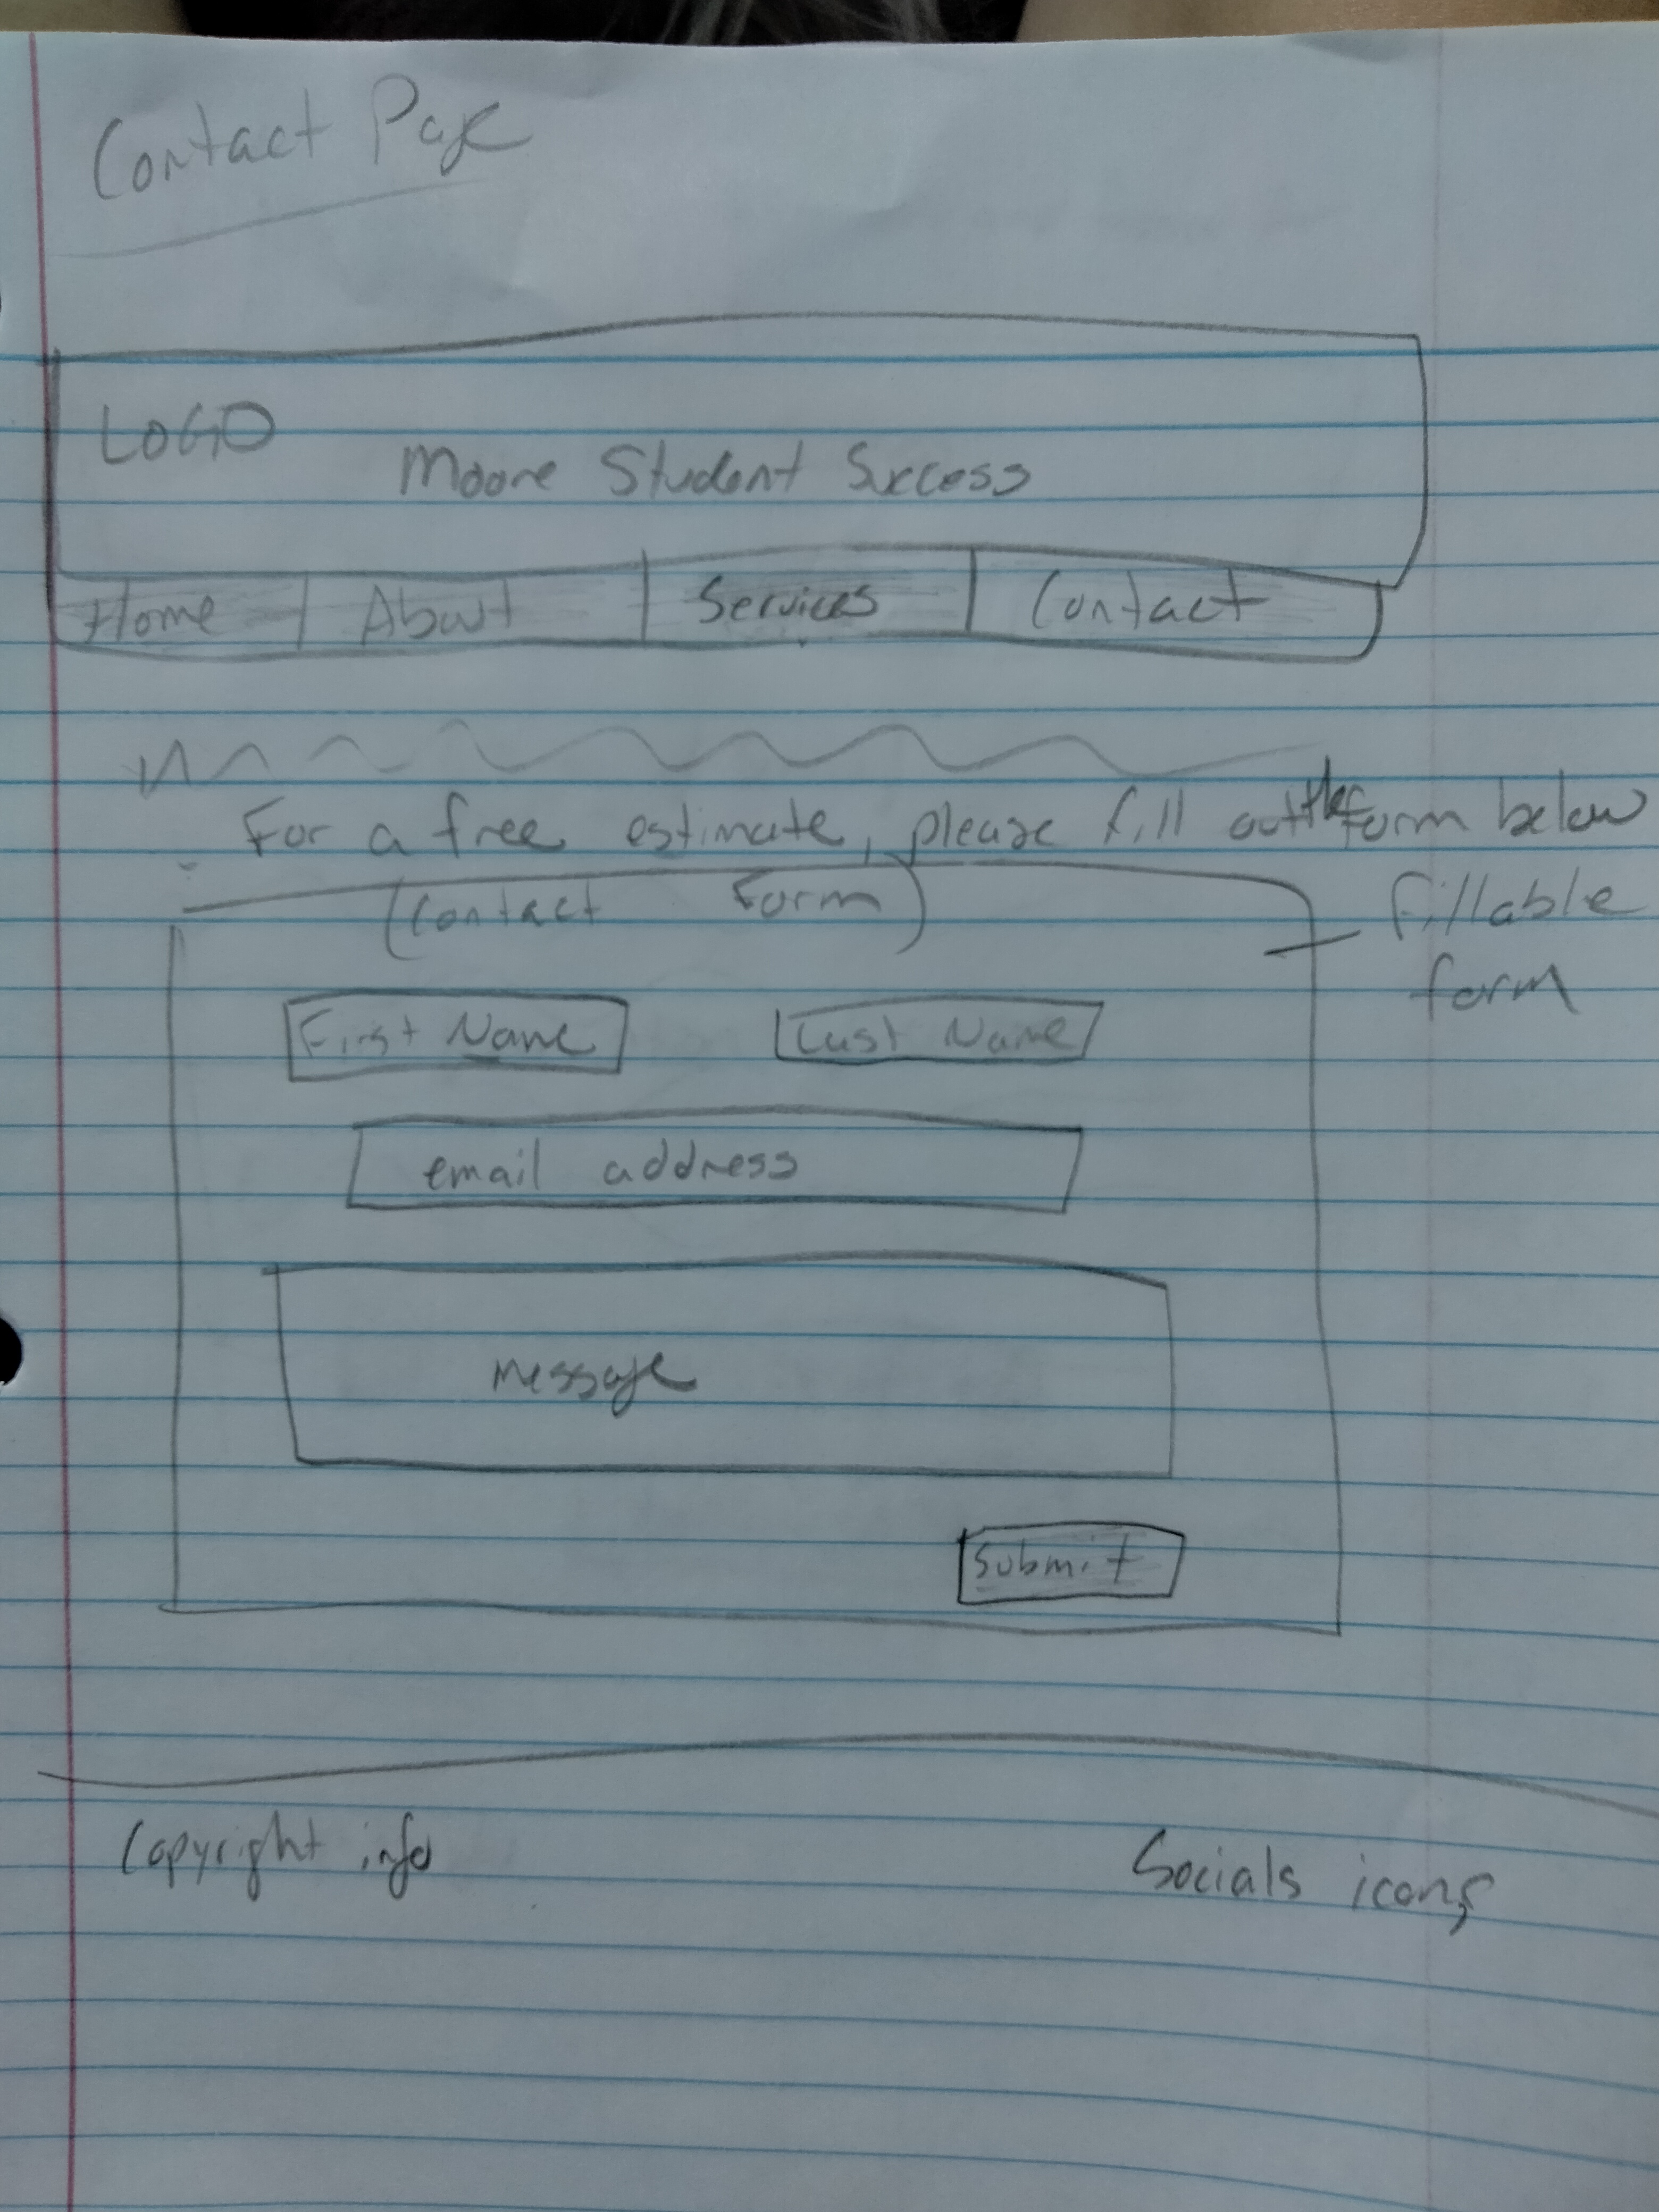 Contact Page
LOGO
Moore Student Success
Home About Services Contact
For a free estimate, please fill out the form below
(Contact Form)
fillable
form
First Name Last Name
email address
message
Submit
Copyright info
Socials icons